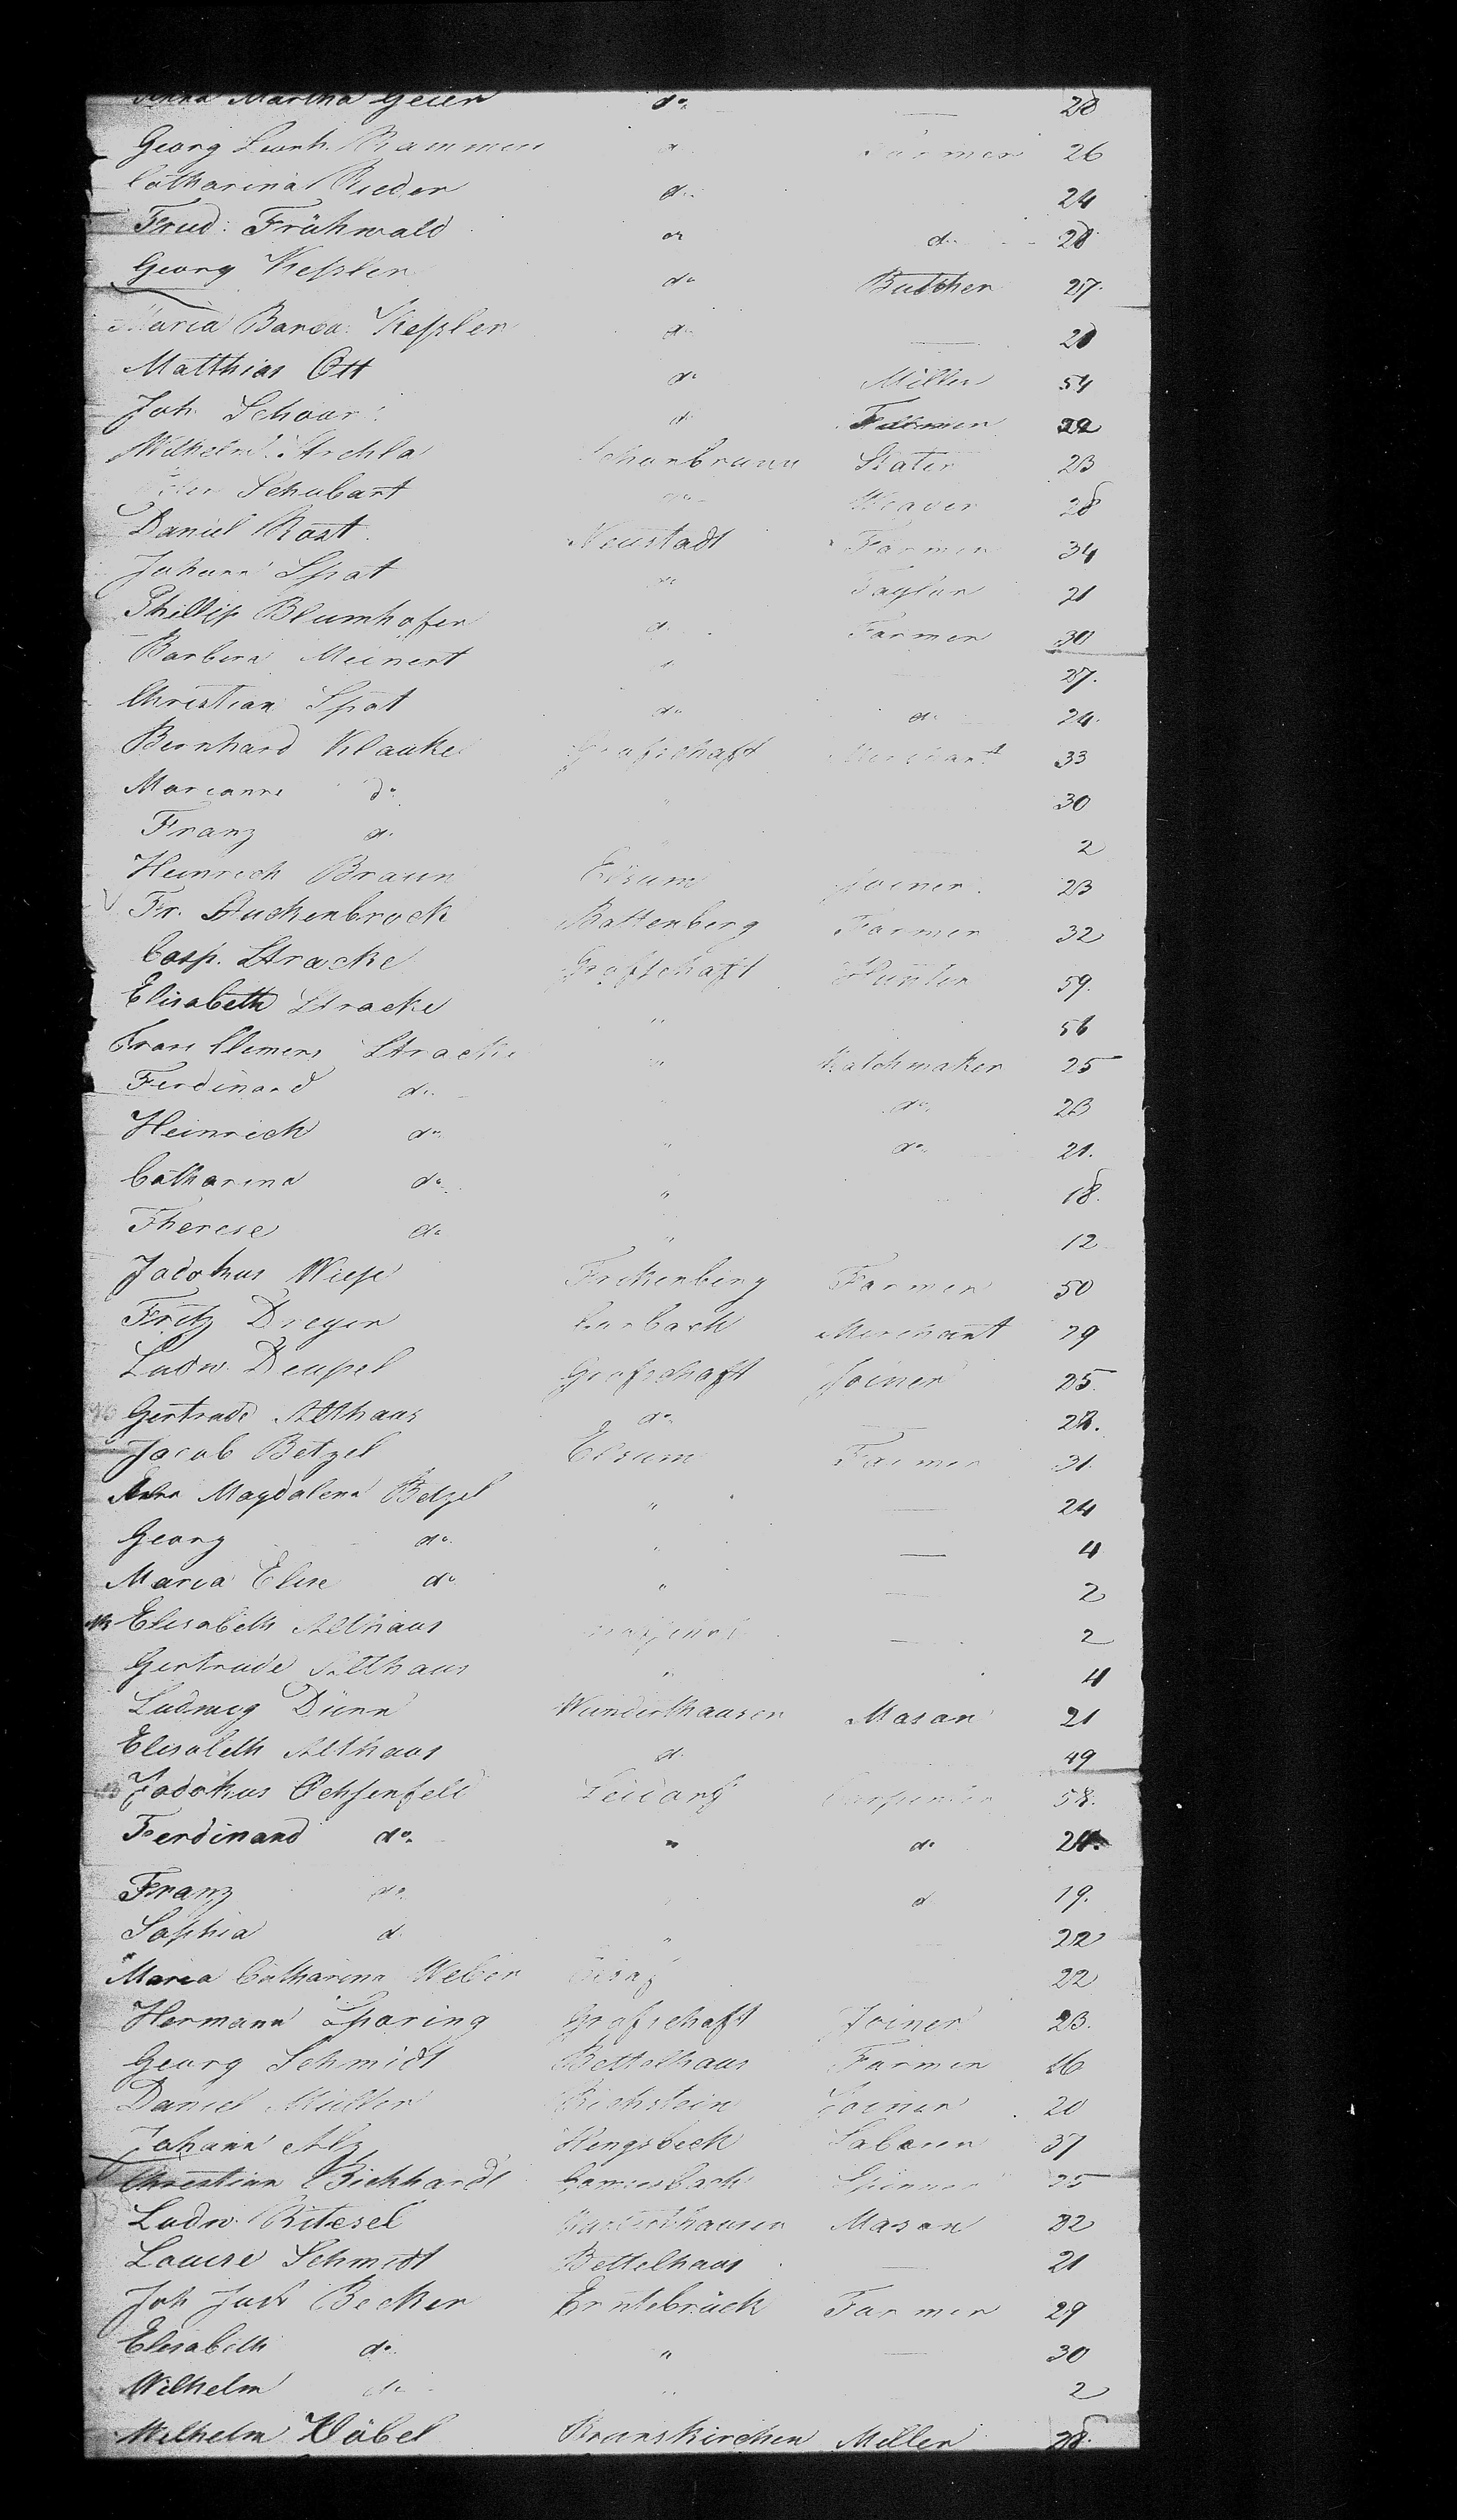 Anna Martha Geier do. — 28
Georg Leonh. d. Farmer 26
Catharina Rieder do. 24
Fried: Frühwald do d. 28
Georg Keßler do Butcher 27.
Maria Barba. Keßler do — 20
Matthias Ott do Miller 54
Joh Schaar d. Farmer 22
Wilhelm Schonbrunn 23
Schubart do Weaver 28
Daniel Rost Neustadt Farmer 34
Johann Spat do Taylor 21
Phillip Blumhofer d. Farmer 30
Barbera Meinert " 27.
Christian Spat do d. 24.
Bernhard Klauke Grafschaft Merchant 33
Marianne do " 30
Franz do 2
Heinrich Braun Elsum Joiner 23
Fr. Duckenbrock Battenberg Farmer 32
Casp. Stracke Grafschaft Hunter 59.
Elisabeth Stracke " 56
Franz Clemens Stracke " Watchmaker 25
Ferdinand do. do. 23
Heinrich do. " do. 21.
Catharina do. " 18.
Therese do " 12
Jodokus Wiese Farmer 50
Fritz Dreyer Merchant 29
Ludw. Deupel Grafschaft Joiner 25.
Gertrude Althaus do. — 28.
Jacob Betzel Elsum Farmer 31
Anna Magdalena Betzel " — 24
Georg do. " — 4
Maria Elise do " — 2
Elisabeth Althaus — 2
Gertrude Althaus " 4
Ludwig Dünn Wunderthausen Mason 21
Elisabeth Althaus d. 49
Jodokus Ochsenfeld Carpenter 58.
Ferdinand do. " do 24.
Franz do. d 19.
Sophia d. " 22
Maria Catharina Weber 22
Hermann Sparing Grafschaft Joiner 23.
Georg Schmidt Bettelhaus Farmer 16
Daniel Müller Richstein Joiner 20
Johann Hengsbeck 37
Christian Bickhardt Spinner 25
Ludw. Mason 32
Louise Schmidt Bettelhaus — 21
Joh Just Becker Erntebrück Farmer 29
Elisabeth do. " — 30
Wilhelm do " 2
Wilhelm Kranskirchen Miller 28.